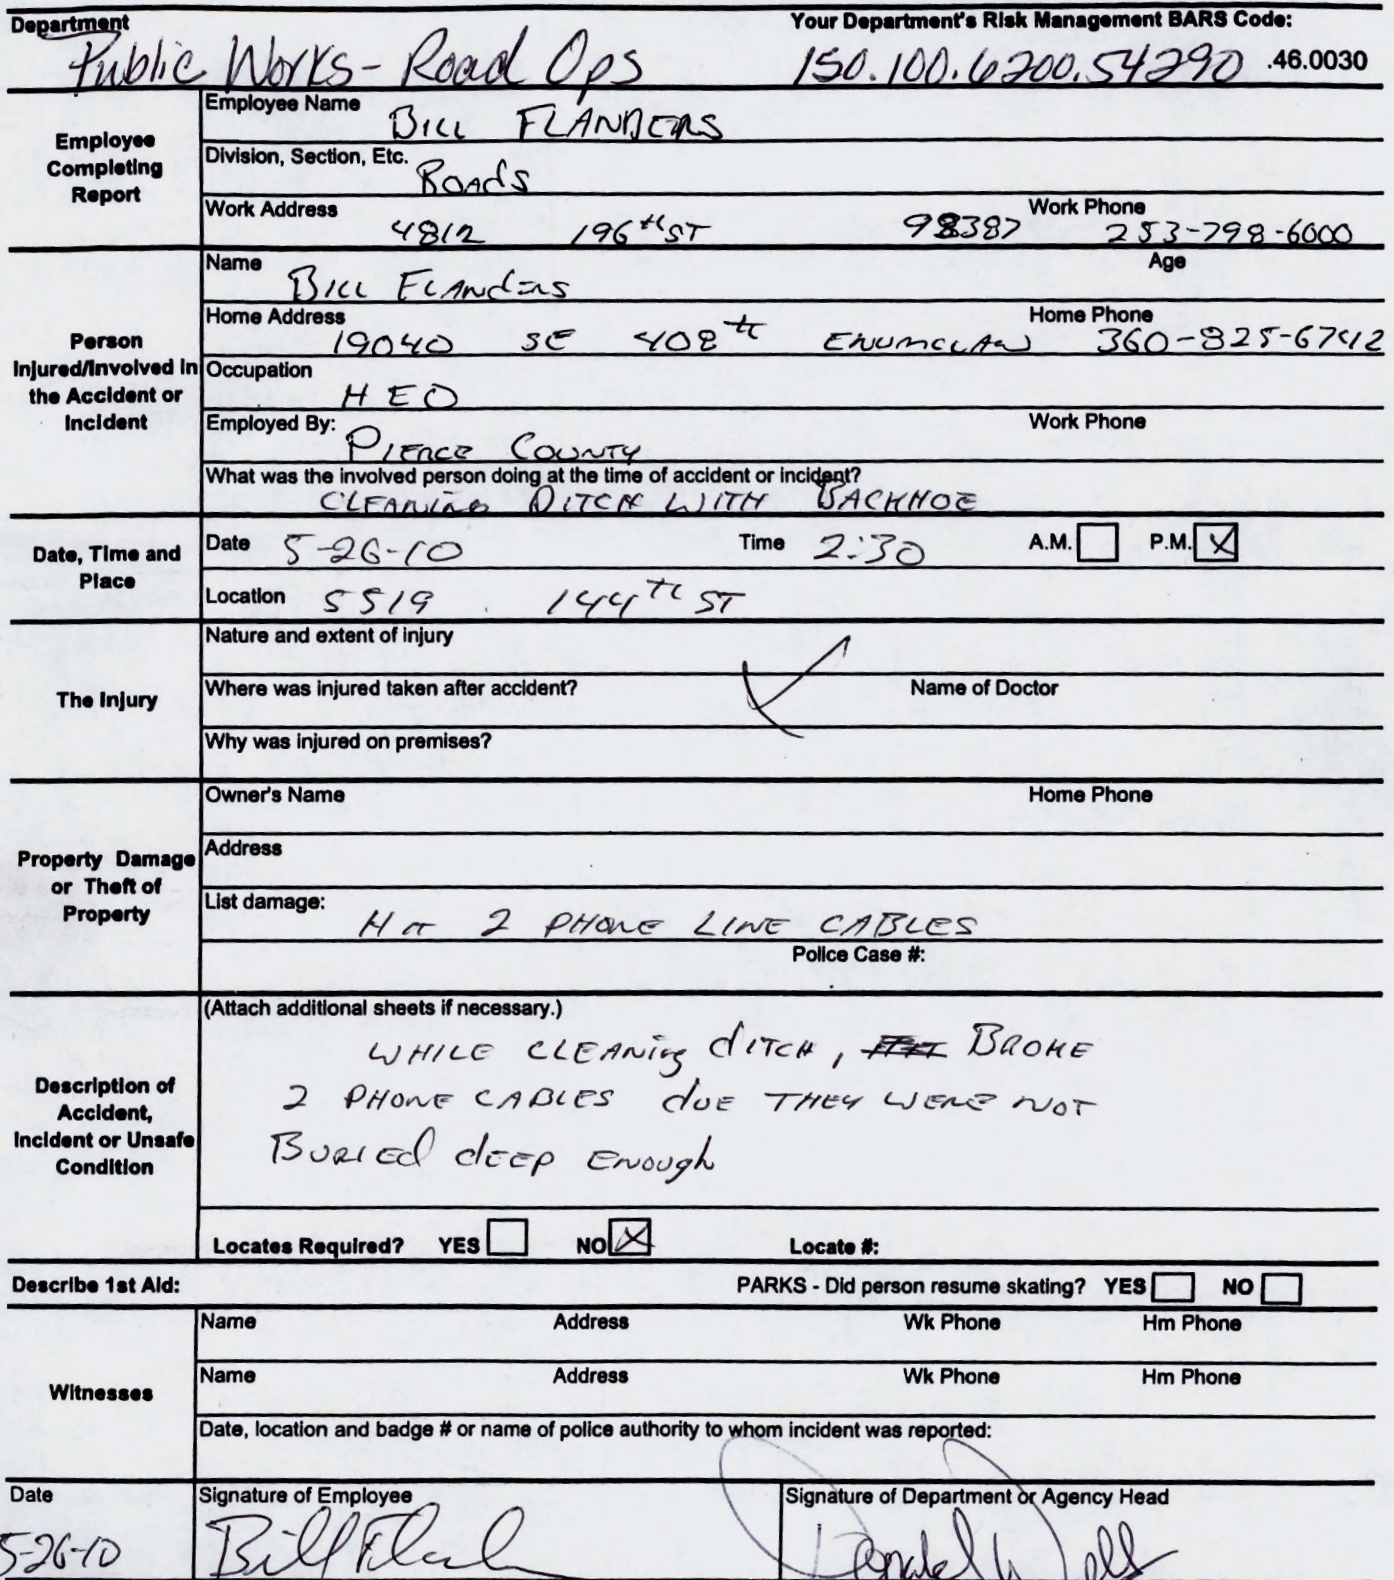 Department Your Department's Risk Management BARS Code:
Public Works - Road Ops 150.100.6200.54290 .46.0030
Employee Completing Report
Employee Name BILL FLANDERS
Division, Section, Etc. ROADS
Work Address Work Phone
4812 196th ST 98387 253-798-6000
Person Injured/Involved in the Accident or Incident
Name Age
BILL FLANDERS
Home Address Home Phone
19040 SE 408th ENUMCLAW 360-825-6742
Occupation
HEO
Employed By: Work Phone
PIERCE COUNTY
What was the involved person doing at the time of accident or incident?
CLEANING DITCH WITH BACKHOE
Date, Time and Place
Date 5-26-10 Time 2:30 A.M. P.M. X
Location 5519 144th ST
The Injury
Nature and extent of injury
Where was injured taken after accident? Name of Doctor
Why was injured on premises?
Property Damage or Theft of Property
Owner's Name Home Phone
Address
List damage:
HIT 2 PHONE LINE CABLES
Police Case #:
Description of Accident, Incident or Unsafe Condition
(Attach additional sheets if necessary.)
WHILE CLEANING DITCH, BROKE
2 PHONE CABLES DUE THEY WERE NOT
BURIED DEEP ENOUGH
Locates Required? YES NO X Locate #:
Describe 1st Aid: PARKS - Did person resume skating? YES NO
Witnesses
Name Address Wk Phone Hm Phone
Name Address Wk Phone Hm Phone
Date, location and badge # or name of police authority to whom incident was reported:
Date Signature of Employee Signature of Department or Agency Head
5-26-10 Bill